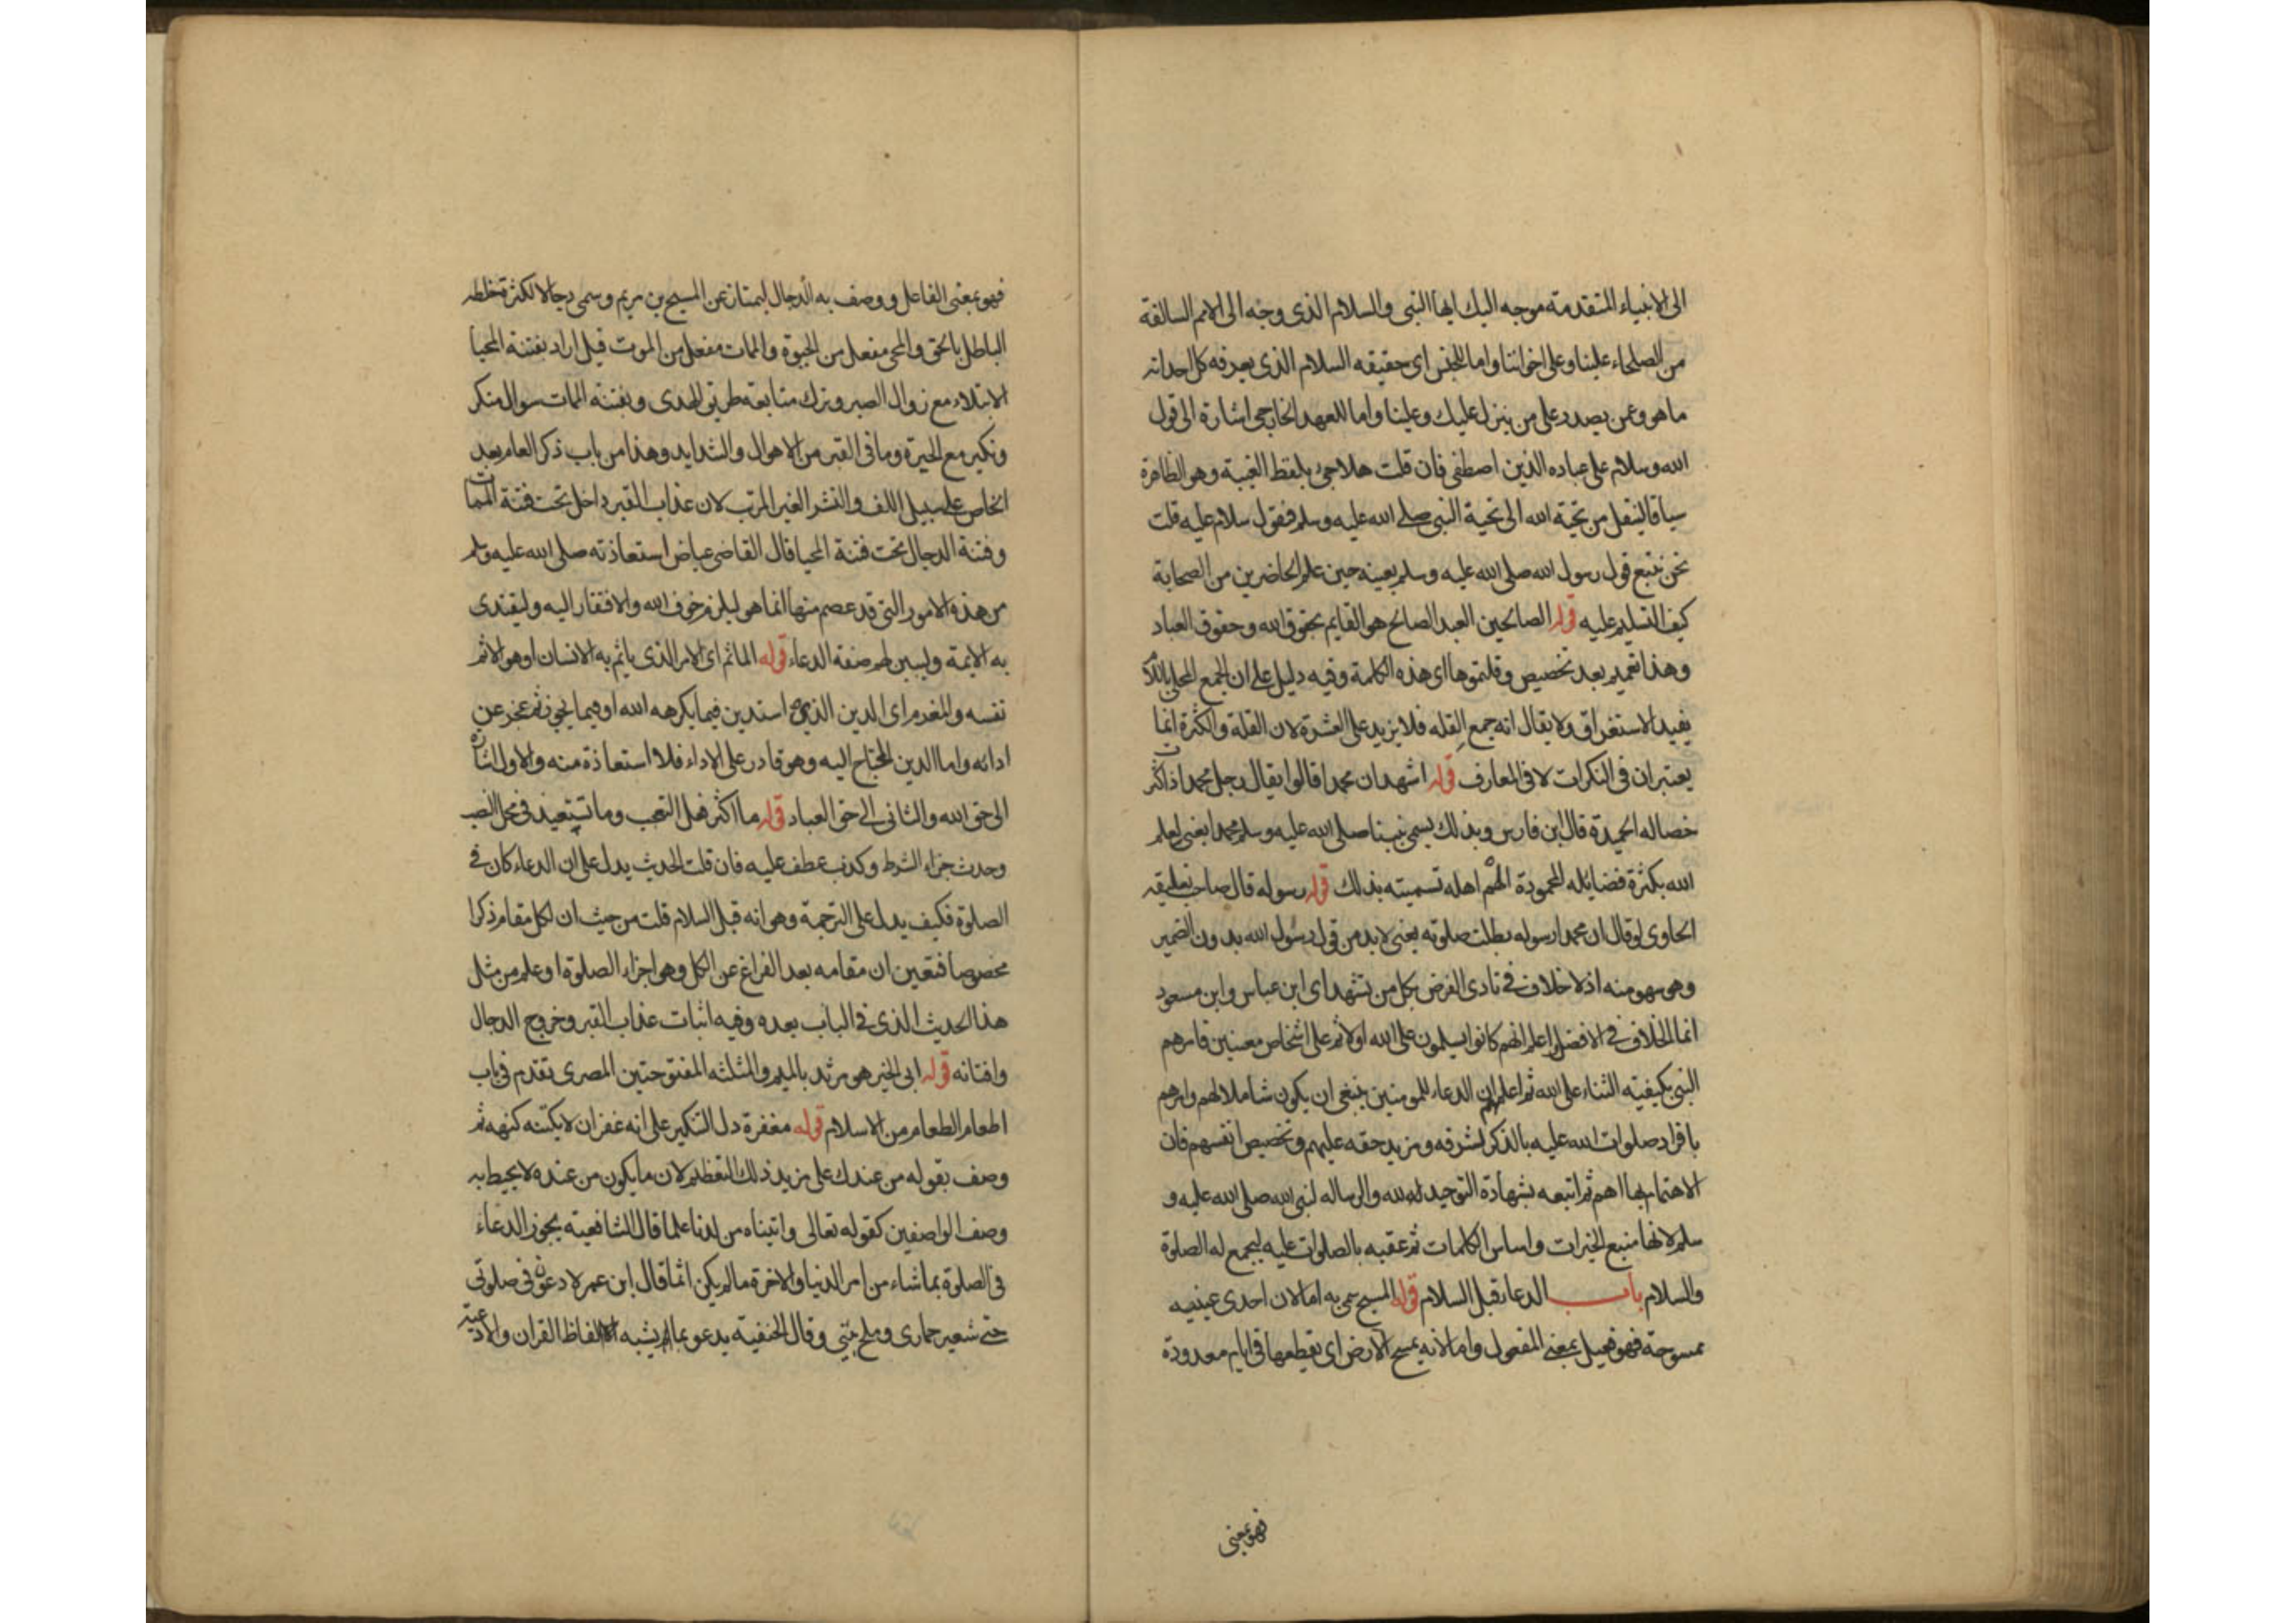 الى الانبياء المتقدمة موجه اليك ايها النبى والسلام الذى وجه الى الامم السالفة
من الصلحاء علينا وعلى اخواننا واما للجنس اى حقيقه السلام الذى يعرفه كل احد انه
ما هو وعمن يصدر وعلى من ينزل عليك وعلينا واما للعهد الخارجى اشارة الى قول
الله وسلام على عباده الذين اصطفى فان قلت هلا جئ بلفظ الغيبة وهو الظاهرة
سياقا لينقل من تحية الله الى تحية النبى صلى الله عليه وسلم فقول سلام عليه قلت
نحن نتبع قول رسول الله صلى الله عليه وسلم بعينه حين علم الحاضرين من الصحابة
كيف التسليم عليه قوله الصالحين العبد الصالح هو القايم بحقوق الله وحقوق العباد
وهذا تعميم بعد تخصيص وقلتموها اى هذه الكلمة وفيه دليل على ان الجمع المحلى باللام
يفيد الاستغراق ولا يقال انه جمع القله فلا يزيد على العشرة لان القلة والكثرة انما
يعتبران فى النكرات لا فى المعارف قوله اشهد ان محمدا قالوا يقال رجل محمد اذا كثرت
خصاله الحميدة قال ابن فارس وبذلك يسمى نبينا صلى الله عليه وسلم محمدا يعنى لعلم
الله بكثرة فضائله المحمودة الهم اهله تسميته بذلك قوله رسوله قال صاحب تعليقه
الحاوى لو قال ان محمدا رسوله بطلت صلوته يعنى لابد من قول رسول الله بدون الضمير
وهو سهو منه اذ لا خلاف فى تادى الفرض بكل من تشهداى ابن عباس وابن مسعود
انما الخلاف فى الافضل اعلم انهم كانوا يسلمون على الله اولا ثم على اشخاص معينين فامرهم
النبى بكيفيته الثناء على الله ثم اعلمهم ان الدعاء للمومنين ينبغى ان يكون شاملا لهم وامرهم
بافراد صلوات الله عليه بالذكر لشرفه ومزيد حقه عليهم وتخصيص انفسهم فان
الاهتمام بها اهم ثم اتبعه بشهادة التوحيد لله والرساله لنبى الله صلى الله عليه و
سلم لانها منبع الخيرات واساس الكلمات ثم عقبه بالصلوات عليه ليجمع له الصلوة
والسلام باب الدعاء قبل السلام قوله المسيح سمى به اما لان احدى عينيه
ممسوحة فهو فعيل بمعنى المفعول واما لانه يمسح الارض اى يقطعها فى ايام معدودة
فهو بمعنى
فهو بمعنى الفاعل ووصف به الدجال ليمتاز عن المسيح بن مريم وسمى دجالا لكثرة خلطه
الباطل بالحق والمحى مفعل من الحيوة والممات مفعل من الموت قيل اراد بفتنة المحيا
الابتلاء مع زوال الصبر وترك متابعه طريق الهدى وبفتنه الممات سوال منكر
ونكير مع الحيرة وما فى القبر من الاهوال والشدايد وهذا من باب ذكر العام بعد
الخاص على سبيل اللف والنشر الغير المرتب لان عذاب القبر داخل تحت فتنة الممات
وفتنة الدجال تحت فتنة المحيا قال القاضى عياض استعاذته صلى الله عليه وسلم
من هذه الامور التى قد عصم منها انما هو ليلزم خوف الله والافتقار اليه وليقتدى
به الايمة وليبين لهم صفة الدعاء قوله الماثم اى الامر الذى ياثم به الانسان او هو الاثم
نفسه والمغرم اى الدين الذى استدين فيما يكرهه الله او فيما يجوز ثم عجز عن
ادائه واما الدين المحتاج اليه وهو قادر على الاداء فلا استعاذة منه والاول اشارة
الى حق الله والثانى الى حق العباد قوله ما اكثر فعل التعجب وما تستعيذ فى محل النصب
وحدث جزاء الشرط وكذب عطف عليه فان قلت الحديث يدل على ان الدعاء كان فى
الصلوة فكيف يدل على الترجمة وهو انه قبل السلام قلت من حيث ان لكل مقام ذكرا
مخصوصا فتعين ان مقامه بعد الفراغ عن الكل وهو اجزاء الصلوة او علم من مثل
هذا الحديث الذى فى الباب بعده وفيه اثبات عذاب القبر وخروج الدجال
وافتانه قوله ابى الخير هو مرثد بالميم والمثلثه المفتوحتين المصرى تقدم فى باب
اطعام الطعام من الاسلام قوله مغفرة دل التنكير على انه غفران لا يكتنه كنهه ثم
وصف بقوله من عندك على مزيد ذلك التعظيم لان ما يكون من عنده لا يحيط به
وصف الواصفين كقوله تعالى واتيناه من لدنا علما قال الشافعيته يجوز الدعاء
فى الصلوة بما شاء من امر الدنيا والاخرة ما لم يكن اثما قال ابن عمر لادعون فى صلوتى
حتى شعير حمارى وملح بيتى وقال الحنفية يدعو بما يشبه الفاظ القران والادعية